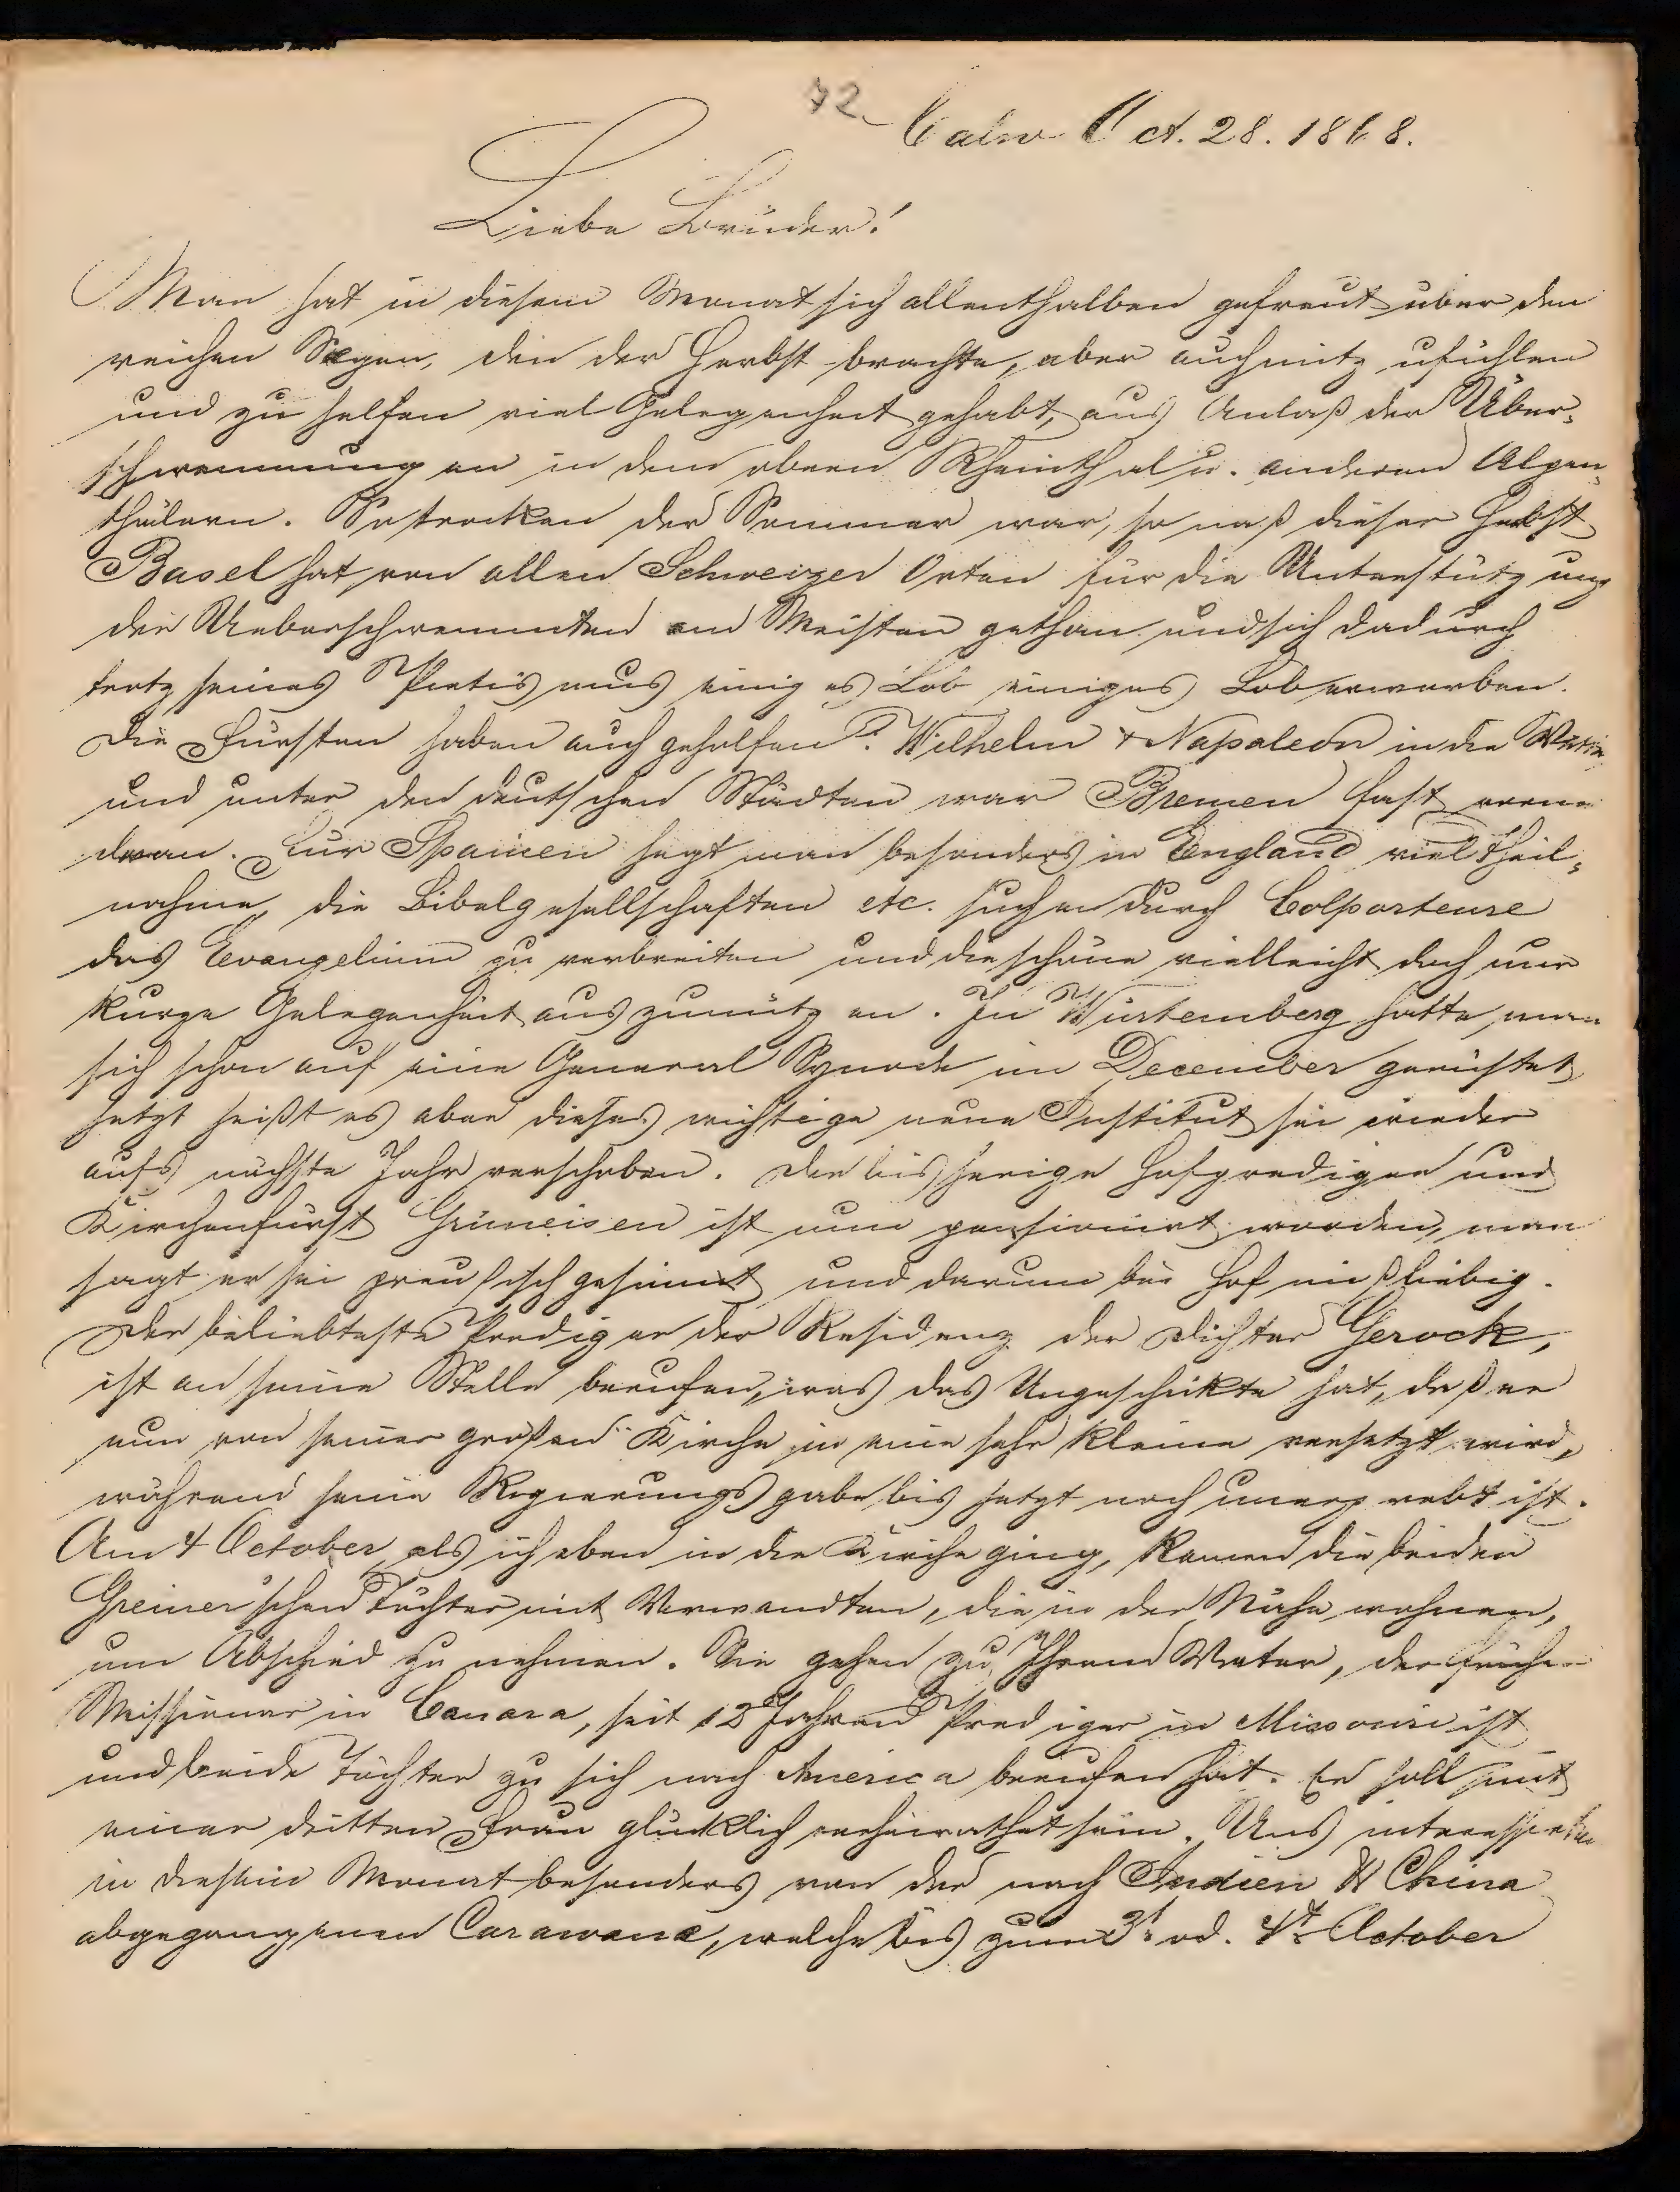 72
Calw Oct. 28. 1868.
Liebe Brüder!
Man hat in diesem Monat sich allenthalben gefreut über den
reichen Segen, den der Herbst brachte, aber auch mitz ufühlen
und zu helfen viel Gelegenheit gehabt, aus Anlaß der Über-
schwemmungen in dem obern Rheinthal u. anderen Alpen-
thälern. So trocken der Sommer war, so naß dieser Herbst
Basel hat von allen Schweizer Orten für die Unterstützung
der Ueberschwemmten am Meisten gethan und sich dadurch
trotz seines Pietismus einiges Lob einiges Lob erworben.
Die Fürsten haben auch geholfen: Wilhelm & Napoleon in die Wette
und unter den deutschen Städten war Bremen fast vorne
dran. Für Spanien hegt man besonders in England viel Theil-
nahme, die Bibelgesellschaften etc. suchen durch Colporteure
das Evangelium zu verbreiten und die schöne vielleicht doch nur
kurze Gelegenheit auszunützen. In Würtemberg hatte man
sich schon auf eine General Synode im December gerüstet
jetzt heißt es aber dieses wichtige neue Institut sei wieder
aufs nächste Jahr verschoben. Der bisherige Hofprediger und
Kirchenfürst Grüneisen ist nun pensionirt worden, man
sagt er sei preussisch gesinnt und darum bei Hof mißliebig.
Der beliebteste Prediger der Residenz der Dichter Gerock,
ist an seine Stelle berufen, was das Ungeschickte hat, daß er
nun von seiner großen Kirche in eine sehr kleine versetzt wird,
während seine Regierungsgabe bis jetzt noch unerprobt ist.
Am 4 October, als ich eben in die Kirche ging, kamen die beiden
Greiner'schen Töchter mit Verwandten, die in der Nähe wohnen,
um Abschied zu nehmen. Sie gehen zu Ihrem Vater, der früher
Missionar in Canara, seit 12 Jahren Prediger in Missouri ist
und beide Töchter zu sich nach America berufen hat. Er soll mit
einer dritten Frau glücklich verheirathet sein. Uns interessirte
in diesem Monat besonders von der nach Indien & China
abgegangenen Carawane, welche bis zum 3t od. 4t October